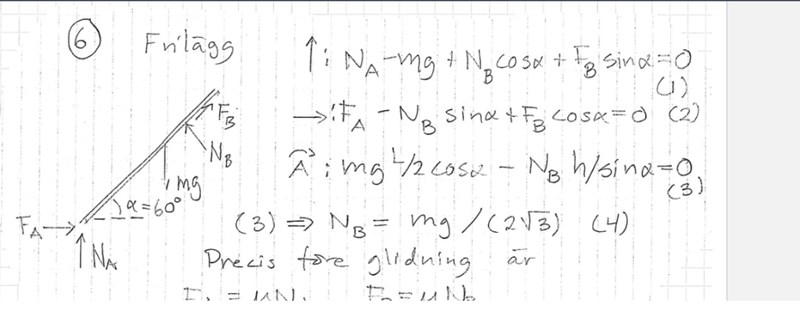 6 Frilägg
↑: N_A - mg + N_B cosα + F_B sinα = 0
(1)
→: F_A - N_B sinα + F_B cosα = 0 (2)
A: mg L/2 cosα - N_B h/sinα = 0
(3)
F_B
N_B
mg
α = 60°
F_A
N_A
(3) ⇒ N_B = mg / (2√3) (4)
Precis före glidning är